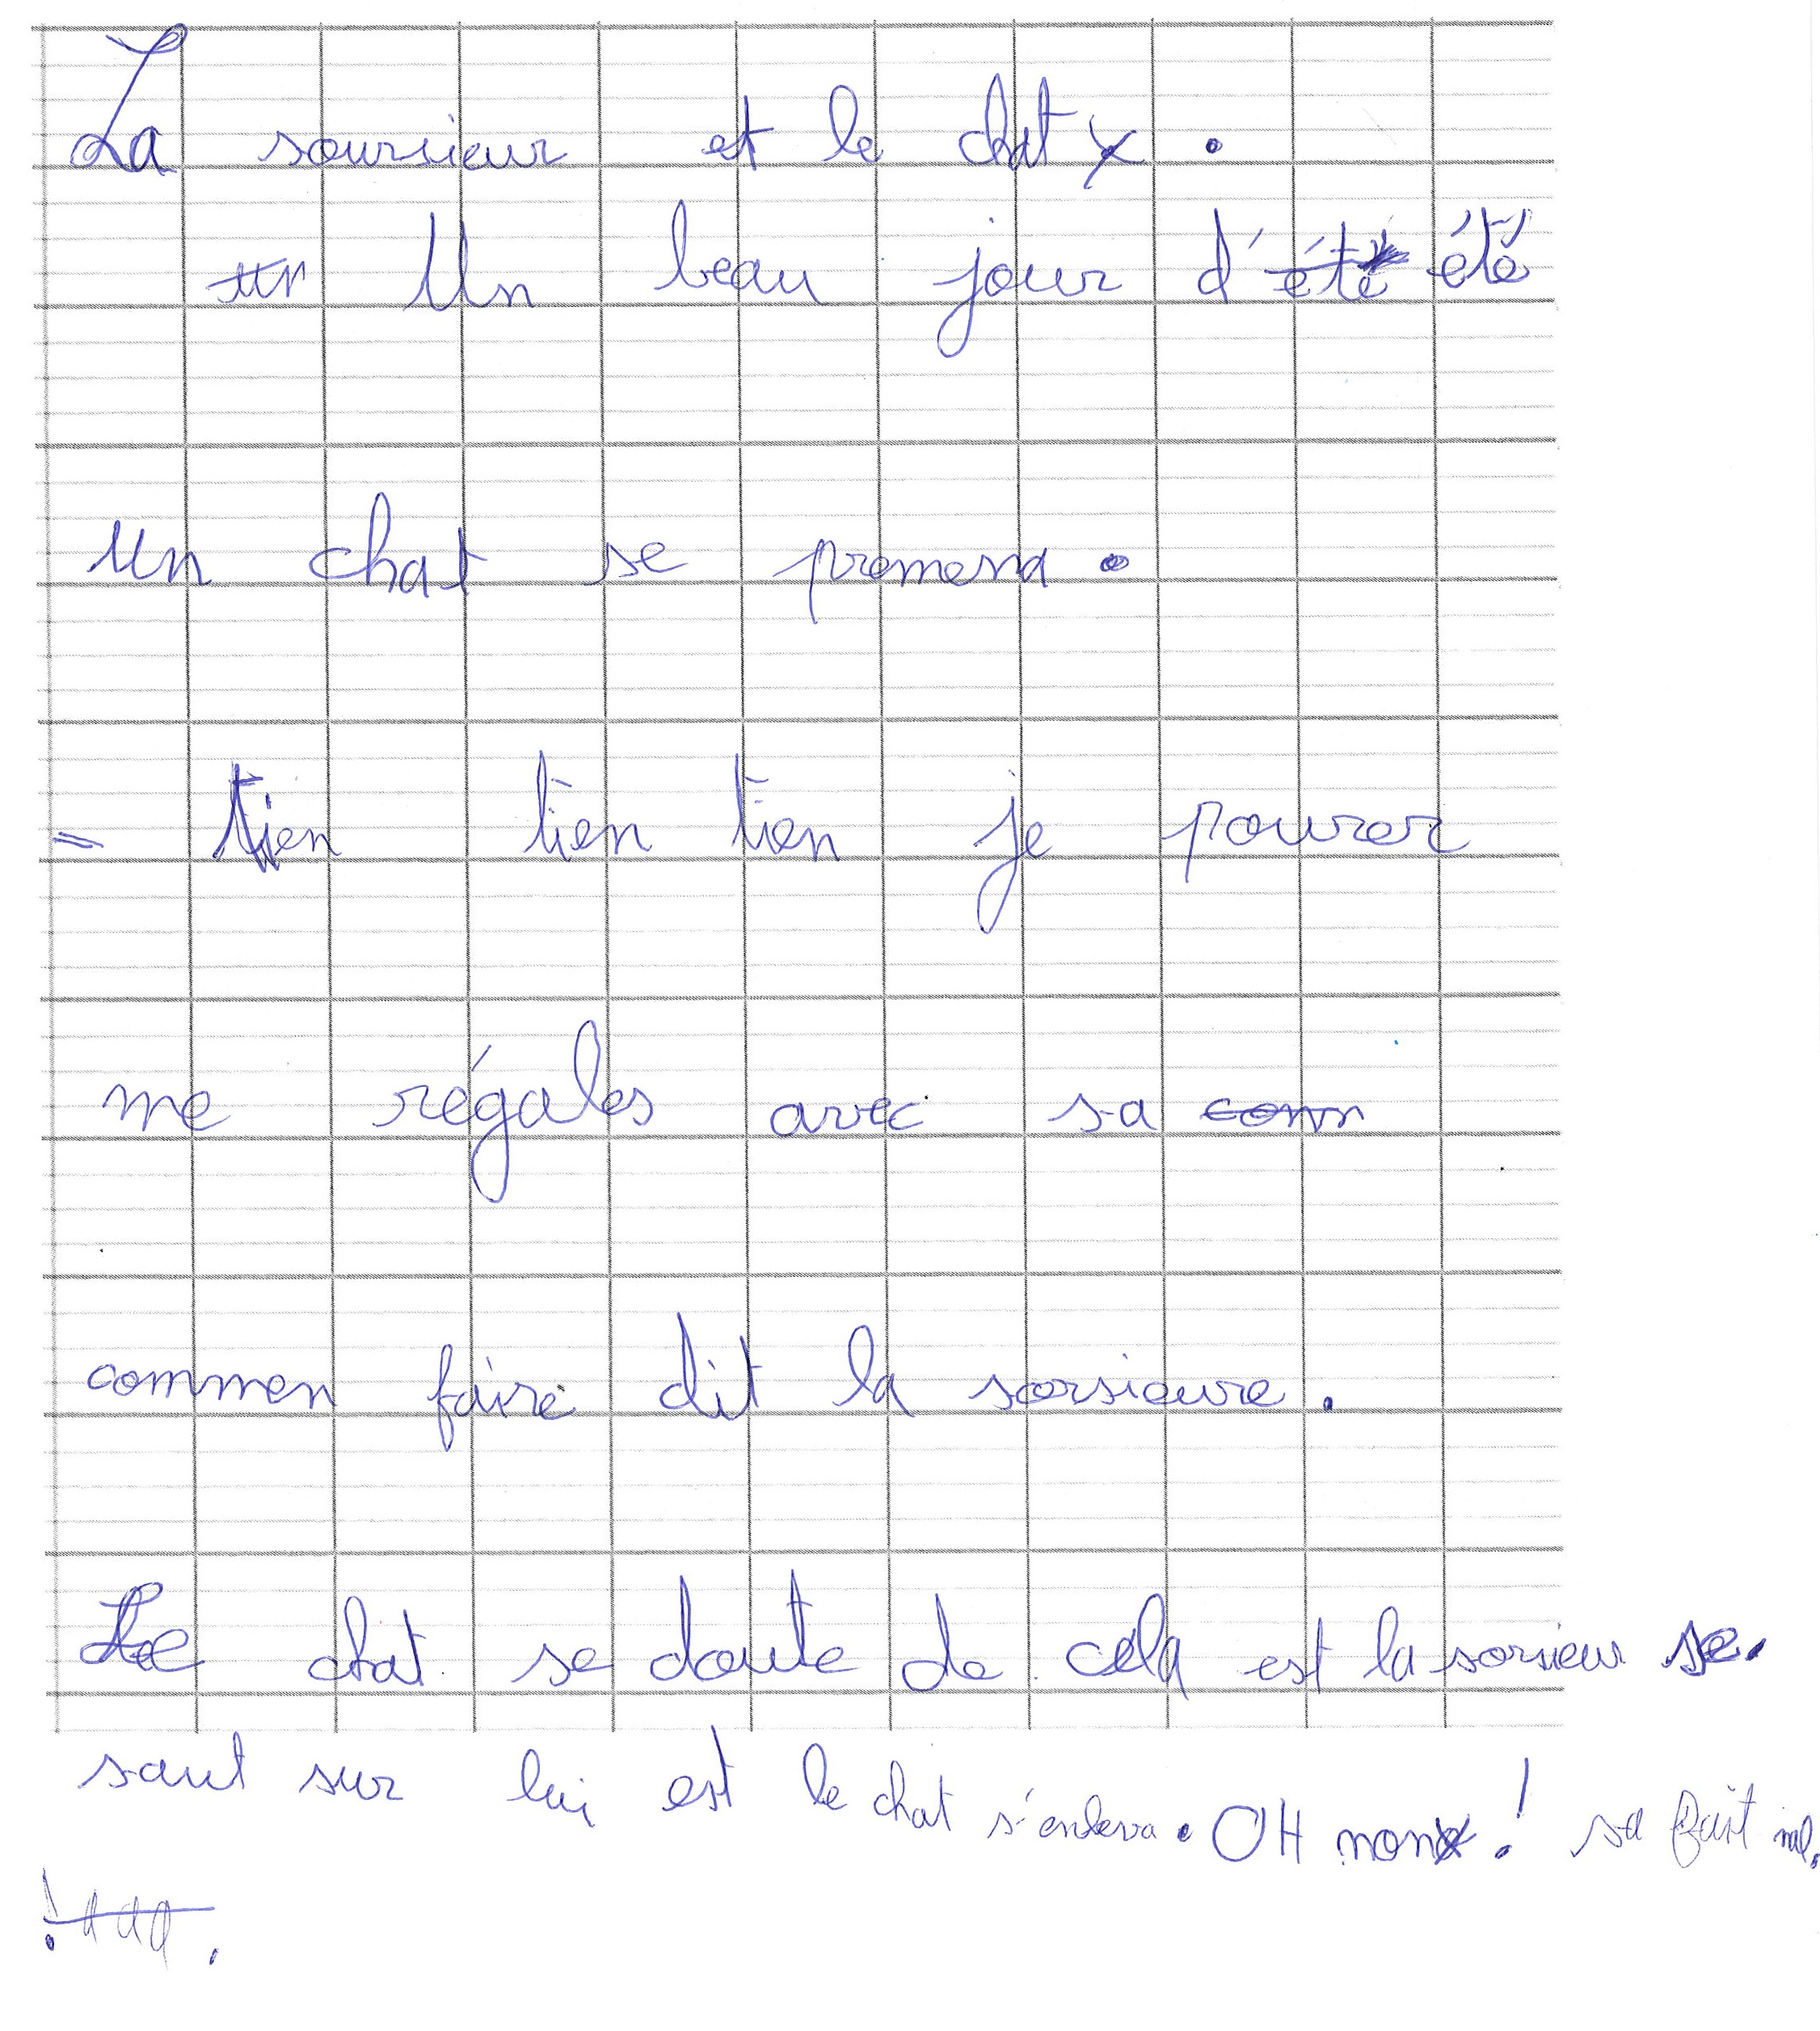 La soursieur et le chat .
Un beau jour d'été
un chat se promena .
- tien tien tien je pourer
me régales avec sa
commen faire dit la sorsieure .
Le chat se doute de cela est la sorsieur se.
saut sur lui est le chat s'enleva . OH non ! sa fait mal.